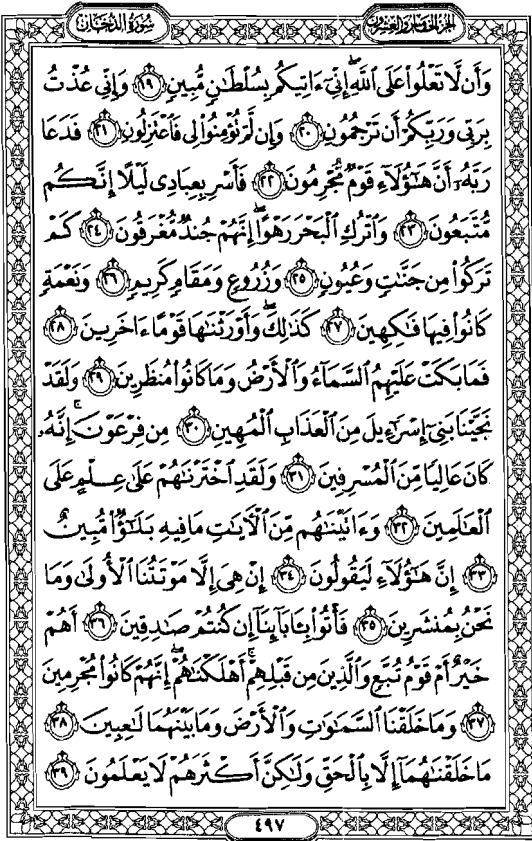 سُورَةُ الدُّخَانِ الجُزْءُ الخَامِسُ وَالعِشْرُونَ
وَأَن لَّا تَعْلُوا۟ عَلَى ٱللَّهِ ۖ إِنِّىٓ ءَاتِيكُم بِسُلْطَـٰنٍ مُّبِينٍ ١٩ وَإِنِّى عُذْتُ
بِرَبِّى وَرَبِّكُمْ أَن تَرْجُمُونِ ٢٠ وَإِن لَّمْ تُؤْمِنُوا۟ لِى فَٱعْتَزِلُونِ ٢١ فَدَعَا
رَبَّهُۥٓ أَنَّ هَـٰٓؤُلَآءِ قَوْمٌ مُّجْرِمُونَ ٢٢ فَأَسْرِ بِعِبَادِى لَيْلًا إِنَّكُم
مُّتَّبَعُونَ ٢٣ وَٱتْرُكِ ٱلْبَحْرَ رَهْوًا ۖ إِنَّهُمْ جُندٌ مُّغْرَقُونَ ٢٤ كَمْ
تَرَكُوا۟ مِن جَنَّـٰتٍ وَعُيُونٍ ٢٥ وَزُرُوعٍ وَمَقَامٍ كَرِيمٍ ٢٦ وَنَعْمَةٍ
كَانُوا۟ فِيهَا فَـٰكِهِينَ ٢٧ كَذَٰلِكَ ۖ وَأَوْرَثْنَـٰهَا قَوْمًا ءَاخَرِينَ ٢٨
فَمَا بَكَتْ عَلَيْهِمُ ٱلسَّمَآءُ وَٱلْأَرْضُ وَمَا كَانُوا۟ مُنظَرِينَ ٢٩ وَلَقَدْ
نَجَّيْنَا بَنِىٓ إِسْرَٰٓءِيلَ مِنَ ٱلْعَذَابِ ٱلْمُهِينِ ٣٠ مِن فِرْعَوْنَ ۚ إِنَّهُۥ
كَانَ عَالِيًا مِّنَ ٱلْمُسْرِفِينَ ٣١ وَلَقَدِ ٱخْتَرْنَـٰهُمْ عَلَىٰ عِلْمٍ عَلَى
ٱلْعَـٰلَمِينَ ٣٢ وَءَاتَيْنَـٰهُم مِّنَ ٱلْـَٔايَـٰتِ مَا فِيهِ بَلَـٰٓؤٌا۟ مُّبِينٌ
٣٣ إِنَّ هَـٰٓؤُلَآءِ لَيَقُولُونَ ٣٤ إِنْ هِىَ إِلَّا مَوْتَتُنَا ٱلْأُولَىٰ وَمَا
نَحْنُ بِمُنشَرِينَ ٣٥ فَأْتُوا۟ بِـَٔابَآئِنَآ إِن كُنتُمْ صَـٰدِقِينَ ٣٦ أَهُمْ
خَيْرٌ أَمْ قَوْمُ تُبَّعٍ وَٱلَّذِينَ مِن قَبْلِهِمْ ۚ أَهْلَكْنَـٰهُمْ ۖ إِنَّهُمْ كَانُوا۟ مُجْرِمِينَ
٣٧ وَمَا خَلَقْنَا ٱلسَّمَـٰوَٰتِ وَٱلْأَرْضَ وَمَا بَيْنَهُمَا لَـٰعِبِينَ ٣٨
مَا خَلَقْنَـٰهُمَآ إِلَّا بِٱلْحَقِّ وَلَـٰكِنَّ أَكْثَرَهُمْ لَا يَعْلَمُونَ ٣٩
٤٩٧